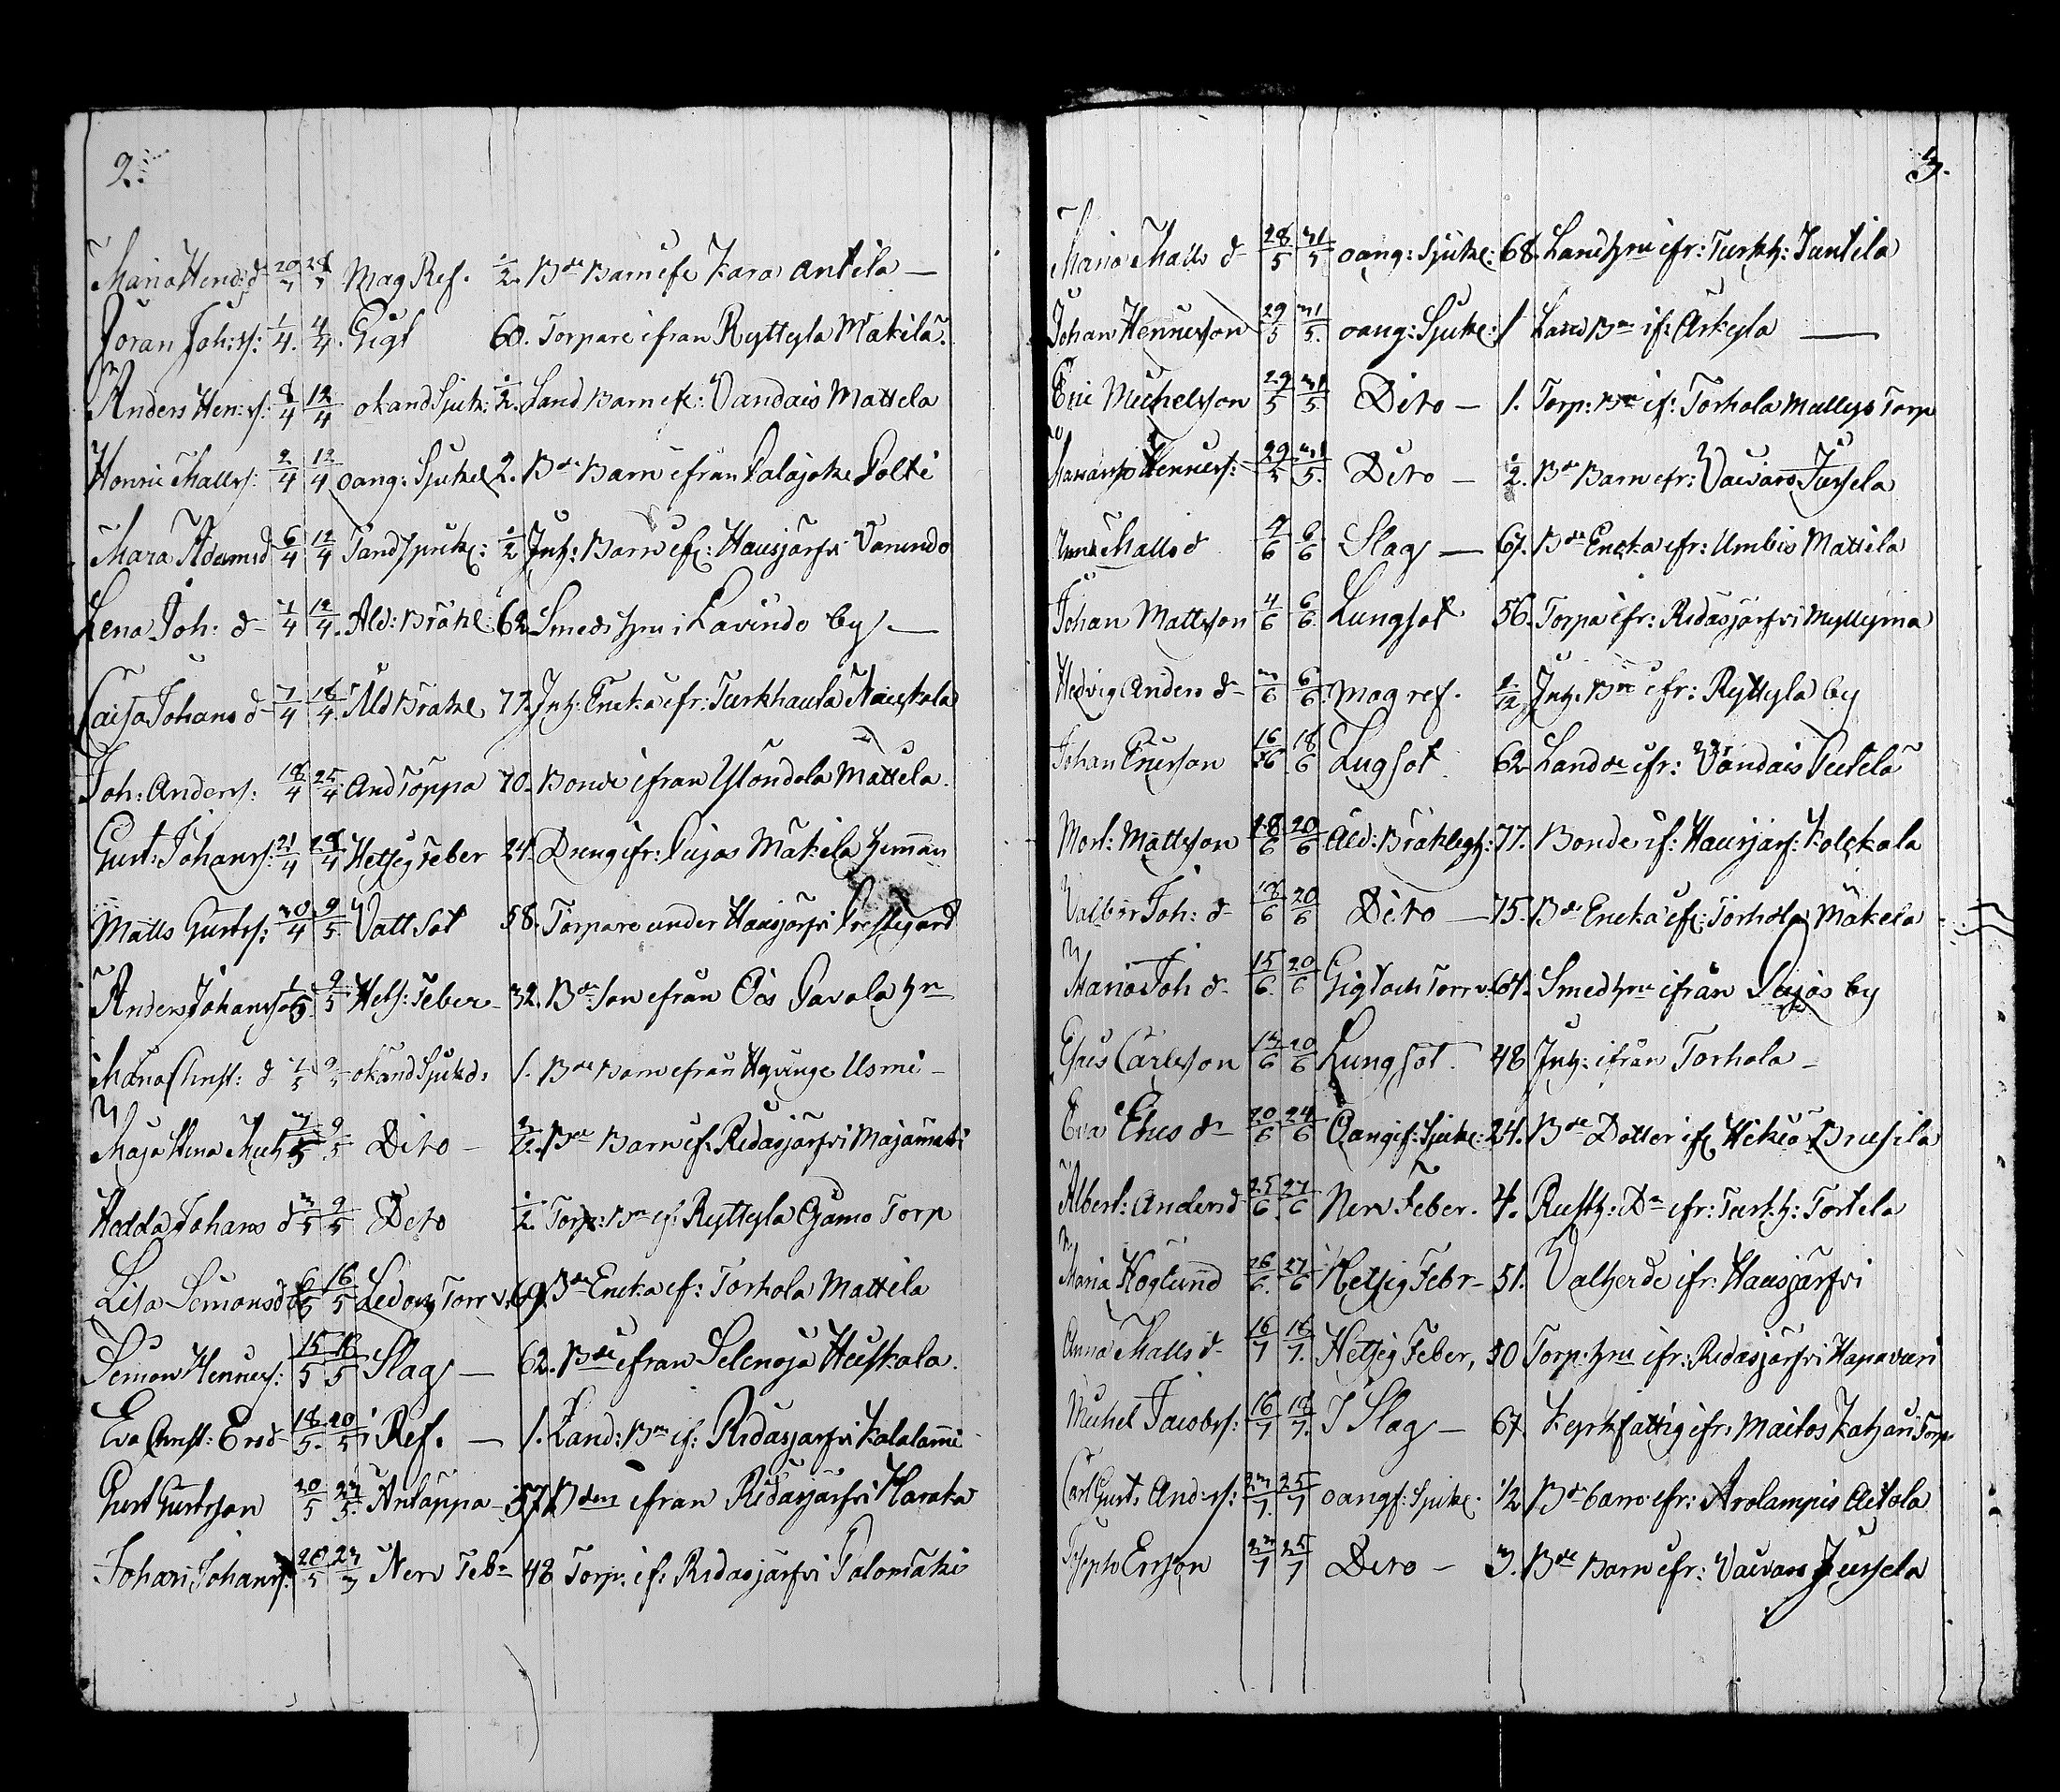 2.
Maria Hend: d 20/3 28/3 Mag Ref. 1/2. Bde Barn ifr Kara Antila —
Jöran Joh: s: 1/4. 4/4. Gigt 60. Torpare ifran Ryttyla Mäkilä.
Anders Hen: s: 8/4 12/4 okand Sjuk: 1/2. Land Barn ifr: Vandais Mattela
Henric Matts: 2/4 12/4 oang: Sjukd 2. Bde Barn ifrån Palajoke Polti
Maria Adamsd 6/4 12/4 Tandsjuk: 1/2 Inh: Barn ifr: Hausjärfvi Vanindo
Lena Joh: d 7/4 12/4. Ald: Bräkl: 62 Smeds hru i Lavindo by —
Caisa Johans d 7/4 18/4. Åld Bräkl 77. Inh: Encka ifr: Turkhaula Nauckola
Joh: Anders: 18/4 25/4. And Toppa 70. Bonde ifran Ylöndola Mattela.
Gust: Johans: 21/4 28/4 Hetsig Feber 24. Dreng ifr: Pujos Mäkilä hemman
Matts Gusts: 30/4 9/5. Vatt Sot 58. Torpare under Hausjärfvi Prestegård
Anders Johansson 1/5. 9/5 Hets: Feber 32. Bde: son ifrån Ois Pavola hn
Maria Christ: d 1/5 9/5 okand Sjukd: 1. Bde Barn ifrån Hyvinge Usmi —
Maja Stina Mich 3/5 9/5 Dito — Bde Barn if: Ridasjärfvi Majamäki
Hedda Johans d 3/5 9/5 Dito 1/2. Torp: Bn if: Ryttyla Gjamo Torp
Lisa Simonsd 6/5 16/5 Ledoch Torr v. 69. Bde Encka if: Torhola Mattila
Simon Henries: 15/5 18/5 Slag — 62. Bde ifran Selenoja Heiskala.
Eva Christ: Ersd 18/5. 20/5 Ref. — 1. Land: Bn if: Ridasjarfvi Kalalami
Gust Gustsson 20/5 23/5. Antäppa 57. Bden ifran Ridasjärfvi Haraka
Johan Johans: 20/5 23/5 Nerv Febr 48 Torp: if: Ridasjärfvi Palomäki
3.
Maria Matts d 28/5 31/5 oang: Sjukd: 68. Land hru ifr: Turkh: Juntila
Johan Henricson 29/5 31/5. oang: Sjukd: 1 Land Bn if: Arkyla —
Eric Michelsson 29/5 31/5. Dito — 1. Torp: Bn if: Torhola Mattys Torp
Henrics: 29/5 31/5. Dito — 1/2. Bde Barn ifr: Vaivars Jussela
Anna Matts d 4/6 6/6 Slag — 67. Bde Encka ifr: Umbis Mattila
Johan Mattsson 4/6 6/6 Lungsot 56. Torpa ifr: Ridasjärfvi Myllyma
Hedvig Anders d 3/6 6/6. mag ref. 1/12 Inh. Bn ifr: Ryttyla by
Johan Ericsson 16/6 18/6 Lugsot 62 Landde ifr: Vandais Pertela
Mort: Mattsson 18/6 20/6 Åld: Bräkligh: 77. Bonde if: Hausjärf: Kolckala
Valbor Joh: d 18/6 20/6 Dito — 75. Bde Encka if: Torhola Mäkela
Maria Joh d. 15/6. 20/6 Gigt och Torr v: 64. Smed hru ifrån Pujos by
Esaias Carlsson 13/6 20/6 Lungsot. 48 Inh: ifrån Torhola —
Eva Erics d 20/6 24/6 Oangif: Sjukd: 24. Bde Dotter ifr Hikiä Brusila
Albert: Anders d 25/6. 27/6 Nerv Feber. 4. Rusth: Dn ifr: Turkh: Tortela
Maria Höglund 26/6. 27/6 Hetsig Febr — 51. Valherde ifr: Hausjärfvi
Anna Matts d 16/7 18/7. Hetsig Feber, 30 Torp: hru ifr: Ridasjärfvi Hapavari
Michel Jacobs: 16/7 18/7. I Slag — 67 Kyrkfattig ifr: Maitos Katjari Torp
Carl Gust: Anders: 23/7. 25/7 oangf: Sjukd. 1/2 Bde barn ifr: Arolampis Aitola
Joseph Ersson 23/7 25/7 Dito — 3. Bde Barn ifr: Vaivars Jussela